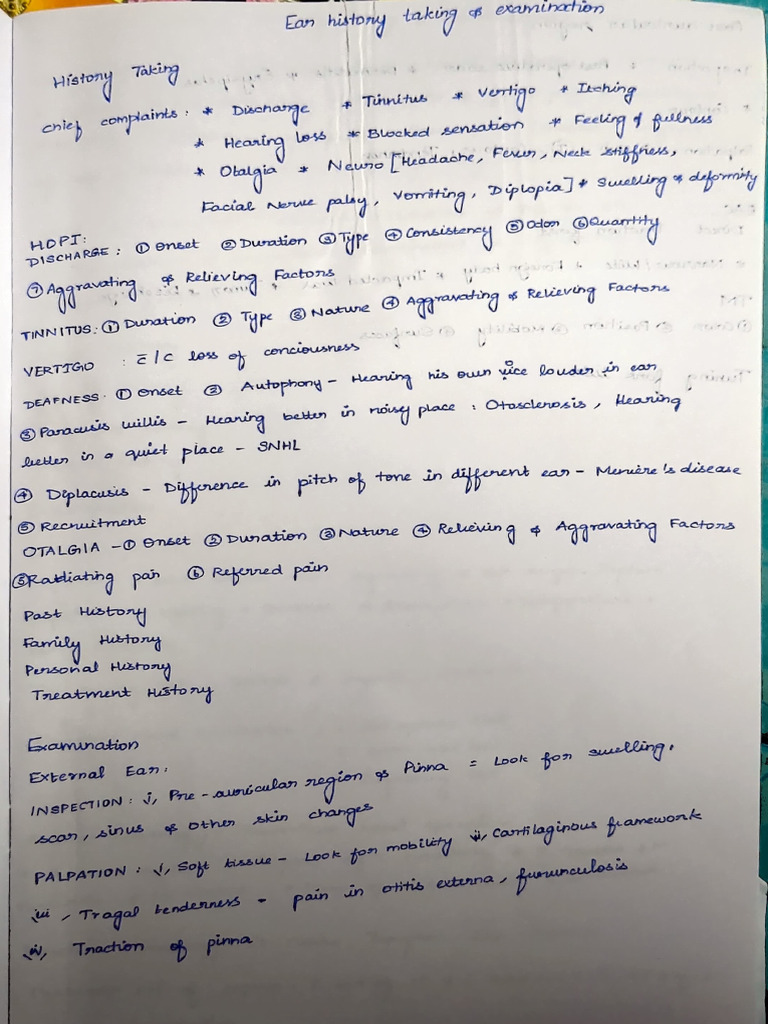 Ear history taking & examination
History Taking
chief complaints: * Discharge * Tinnitus * Vertigo * Itching
* Hearing loss * Blocked sensation * Feeling of fullness
* Otalgia * Neuro [Headache, Fever, Neck stiffness,
Facial Nerve palsy, Vomiting, Diplopia] * Swelling & deformity
HOPI:
DISCHARGE: ① Onset ② Duration ③ Type ④ Consistency ⑤ Odor ⑥ Quantity
⑦ Aggravating & Relieving Factors
TINNITUS: ① Duration ② Type ③ Nature ④ Aggravating & Relieving Factors
VERTIGO : c̄/c loss of conciousness
DEAFNESS: ① Onset ② Autophony - Hearing his own voice louder in ear
③ Paracusis willis - Hearing better in noisy place : Otosclerosis, Hearing
better in a quiet place - SNHL
④ Diplacusis - Difference in pitch of tone in different ear - Meniere's disease
⑤ Recruitment
OTALGIA - ① Onset ② Duration ③ Nature ④ Relieving & Aggravating Factors
⑤ Radiating pain ⑥ Referred pain
Past History
Family History
Personal History
Treatment History
Examination
External Ear:
INSPECTION: i, Pre-auricular region & Pinna = Look for swelling,
scar, sinus & other skin changes
PALPATION: i, Soft tissue - Look for mobility ii, Cartilaginous framework
iii, Tragal tenderness - pain in otitis externa, furunculosis
iv, Traction of pinna